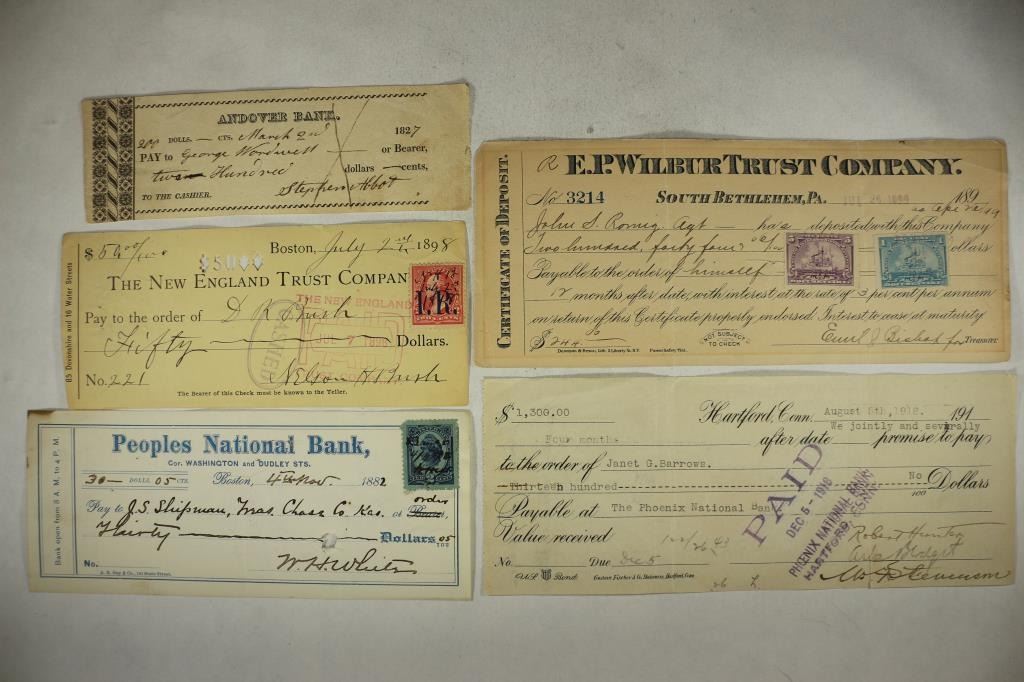 ANDOVER BANK.
200 DOLLS. — CTS. March 2nd 1827
PAY to George Wordwell or Bearer,
two Hundred dollars — cents,
TO THE CASHIER. Stephen Abbot
85 Devonshire and 16 Water Streets
$50 00/100 Boston, July 2nd 1898
$50
THE NEW ENGLAND TRUST COMPANY
I.R.
Pay to the order of D R Bush
Fifty Dollars.
No. 221 Nelson H Bush
The Bearer of this Check must be known to the Teller.
THE NEW ENGLAND
JUL 7 1898
CASHIER
Bank open from 8 A.M. to 4 P.M.
Peoples National Bank,
Cor. WASHINGTON and DUDLEY STS.
30— DOLLS. 05 CTS. Boston, 4th Nov 1882
Pay to J.S. Shipman, Treas. Chase Co. Kas. or order Bearer
Thirty Dollars 05/100
No. W. H. White
CERTIFICATE OF DEPOSIT.
R E.P. WILBUR TRUST COMPANY.
No 3214 SOUTH BETHLEHEM, PA. 189
John S. Romig Agt has deposited with this Company
Two hundred, forty four Dollars
Payable to the order of himself
12 months after date, with interest at the rate of 3 per cent per annum
on return of this Certificate properly endorsed. Interest to cease at maturity
$244 NOT SUBJECT TO CHECK Treasurer
$1,300.00 Hartford, Conn. August 5th, 1918. 191
Four months after date We jointly and severally promise to pay
to the order of Janet G. Barrows.
Thirteen hundred No/100 Dollars
Payable at The Phoenix National Bank
Value received Robert Hunter
No. Due Dec 5
U.S. Bond
PAID
DEC 5 - 1918
PHOENIX NATIONAL BANK
HARTFORD CONN.